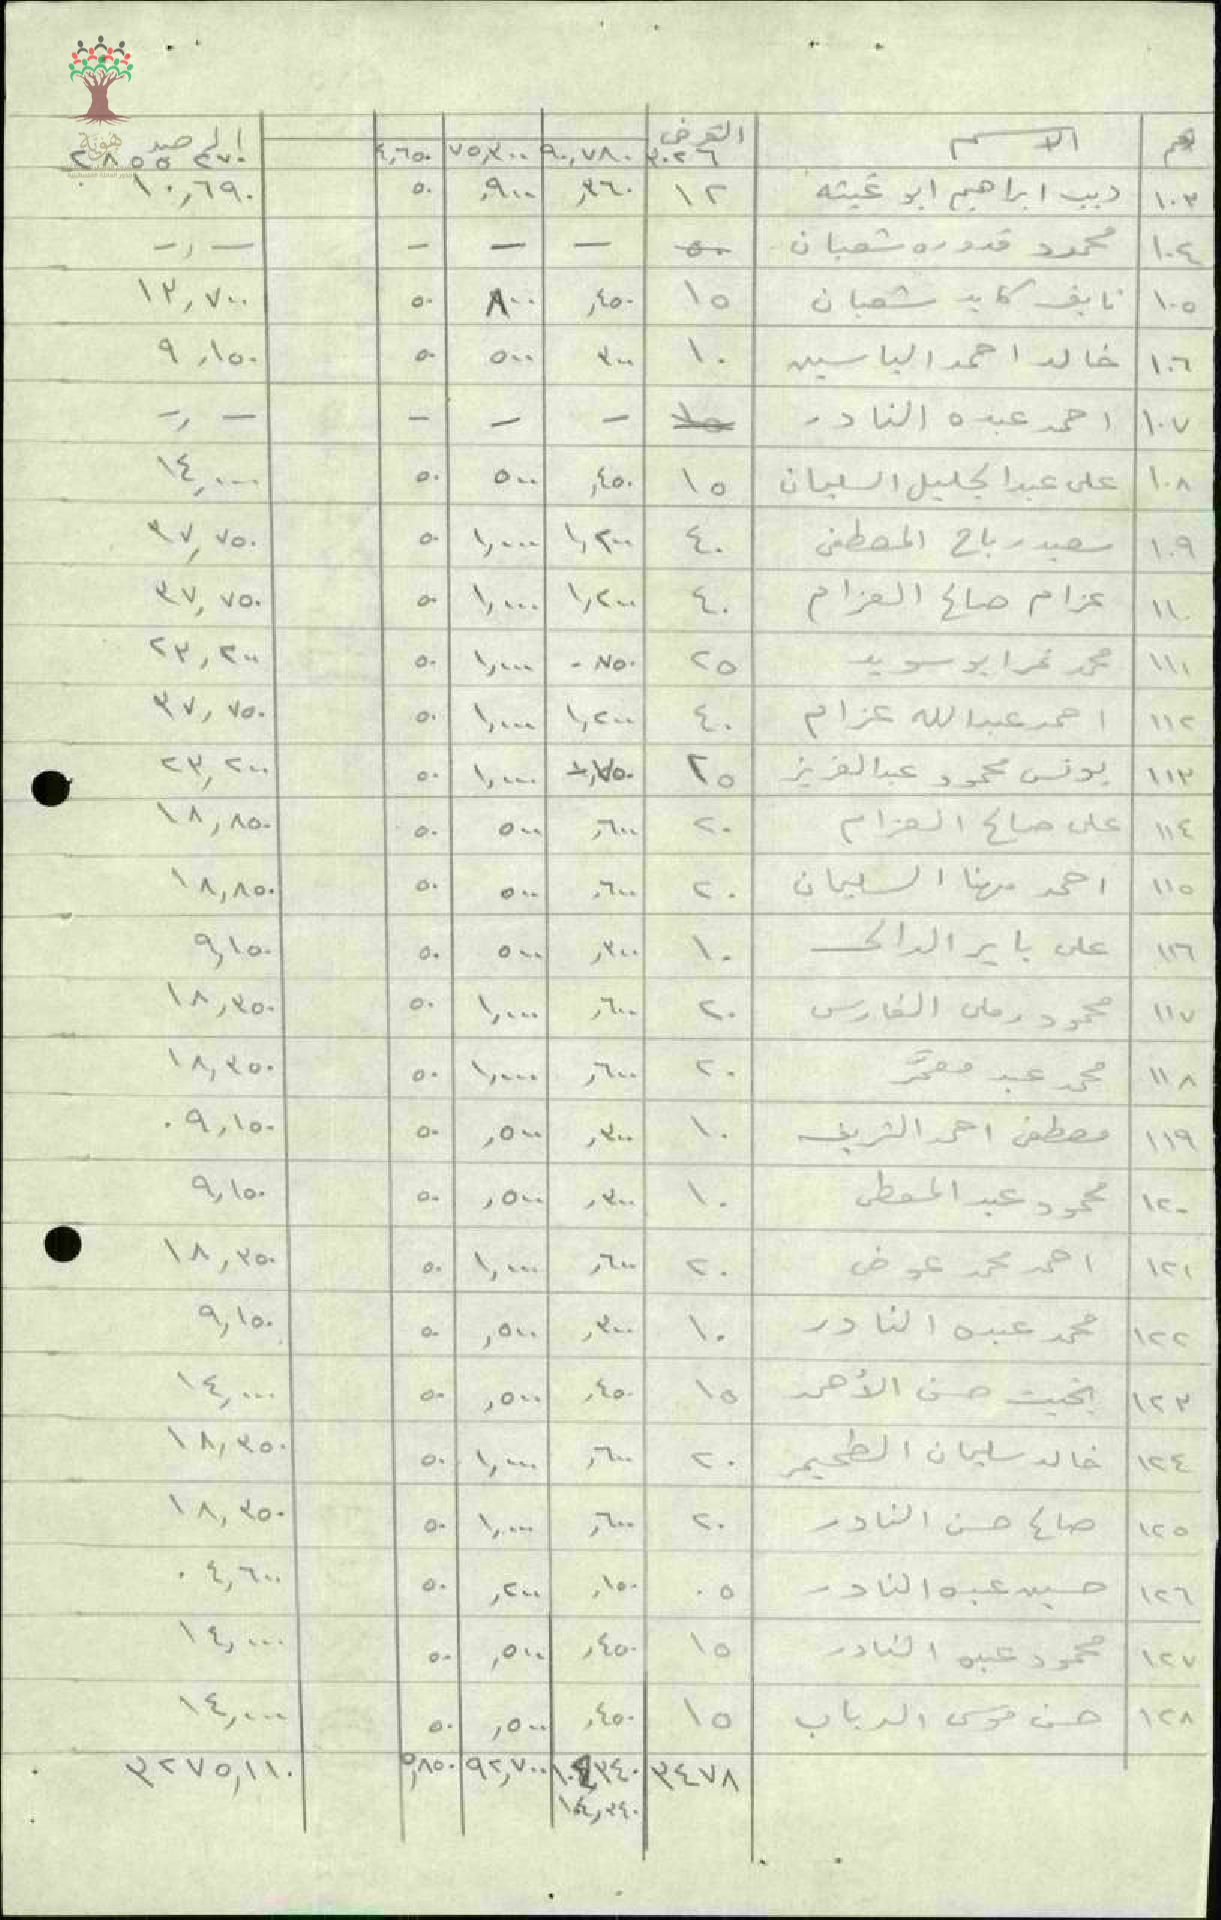 رقم الاسم القرض الرصيد
٣٠٢٦ ٩٠,٧٨٠ ٧٥,٣٠٠ ٤,٦٥٠ ٢٨٥٥,٢٧٠
١٠٣ ديب ابراهيم ابو غيثه ١٢ ,٣٦٠ ,٩٠٠ ٥٠ ١٠,٦٩٠
١٠٤ محمود قدوره شعبان ٥٠ — — — —,—
١٠٥ نايف كايد شعبان ١٥ ,٤٥٠ ٨٠٠ ٥٠ ١٣,٧٠٠
١٠٦ خالد احمد الياسين ١٠ ٣٠٠ ٥٠٠ ٥٠ ٩,١٥٠
١٠٧ احمد عبده النادر — — — —,—
١٠٨ على عبد الجليل السليمان ١٥ ,٤٥٠ ٥٠٠ ٥٠ ١٤,٠٠٠
١٠٩ سعيد رباح المصطفى ٤٠ ١,٢٠٠ ١,٠٠٠ ٥٠ ٣٧,٧٥٠
١١٠ عزام صالح العزام ٤٠ ١,٢٠٠ ١,٠٠٠ ٥٠ ٣٧,٧٥٠
١١١ محمد نمر ابو سويد ٢٥ ٧٥٠ ١,٠٠٠ ٥٠ ٢٣,٢٠٠
١١٢ احمد عبدالله عزام ٤٠ ١,٢٠٠ ١,٠٠٠ ٥٠ ٣٧,٧٥٠
١١٣ يونس محمود عبد العزيز ٢٥ ,٧٥٠ ١,٠٠٠ ٥٠ ٢٣,٢٠٠
١١٤ على صالح العزام ٢٠ ,٦٠٠ ٥٠٠ ٥٠ ١٨,٨٥٠
١١٥ احمد مهنا السليمان ٢٠ ,٦٠٠ ٥٠٠ ٥٠ ١٨,٨٥٠
١١٦ على باير ١٠ ,٣٠٠ ٥٠٠ ٥٠ ٩,١٥٠
١١٧ محمود رملى الفارس ٢٠ ,٦٠٠ ١,٠٠٠ ٥٠ ١٨,٣٥٠
١١٨ محمد عبد معمر ٢٠ ,٦٠٠ ١,٠٠٠ ٥٠ ١٨,٣٥٠
١١٩ مصطفى احمد الشريف ١٠ ,٣٠٠ ,٥٠٠ ٥٠ ٠٩,١٥٠
١٢٠ محمود عبد المعطى ١٠ ,٣٠٠ ,٥٠٠ ٥٠ ٩,١٥٠
١٢١ احمد محمد عوض ٢٠ ,٦٠٠ ١,٠٠٠ ٥٠ ١٨,٣٥٠
١٢٢ محمد عبده النادر ١٠ ,٣٠٠ ,٥٠٠ ٥٠ ٩,١٥٠
١٢٣ بخيت حسن الأحمد ١٥ ,٤٥٠ ,٥٠٠ ٥٠ ١٤,٠٠٠
١٢٤ خالد سليمان الطحيمر ٢٠ ,٦٠٠ ١,٠٠٠ ٥٠ ١٨,٣٥٠
١٢٥ صالح حسن النادر ٢٠ ,٦٠٠ ١,٠٠٠ ٥٠ ١٨,٣٥٠
١٢٦ حسين عبده النادر ٠٥ ,١٥٠ ,٢٠٠ ٥٠ ٠٤,٦٠٠
١٢٧ محمود عبده النادر ١٥ ,٤٥٠ ,٥٠٠ ٥٠ ١٤,٠٠٠
١٢٨ حسن موسى الدباب ١٥ ,٤٥٠ ,٥٠٠ ٥٠ ١٤,٠٠٠
٣٤٧٨ ١٠٤,٣٤٠ ٩٢,٧٠٠ ٥,٨٥٠ ٣٢٧٥,١١٠
١٠٤,٣٤٠